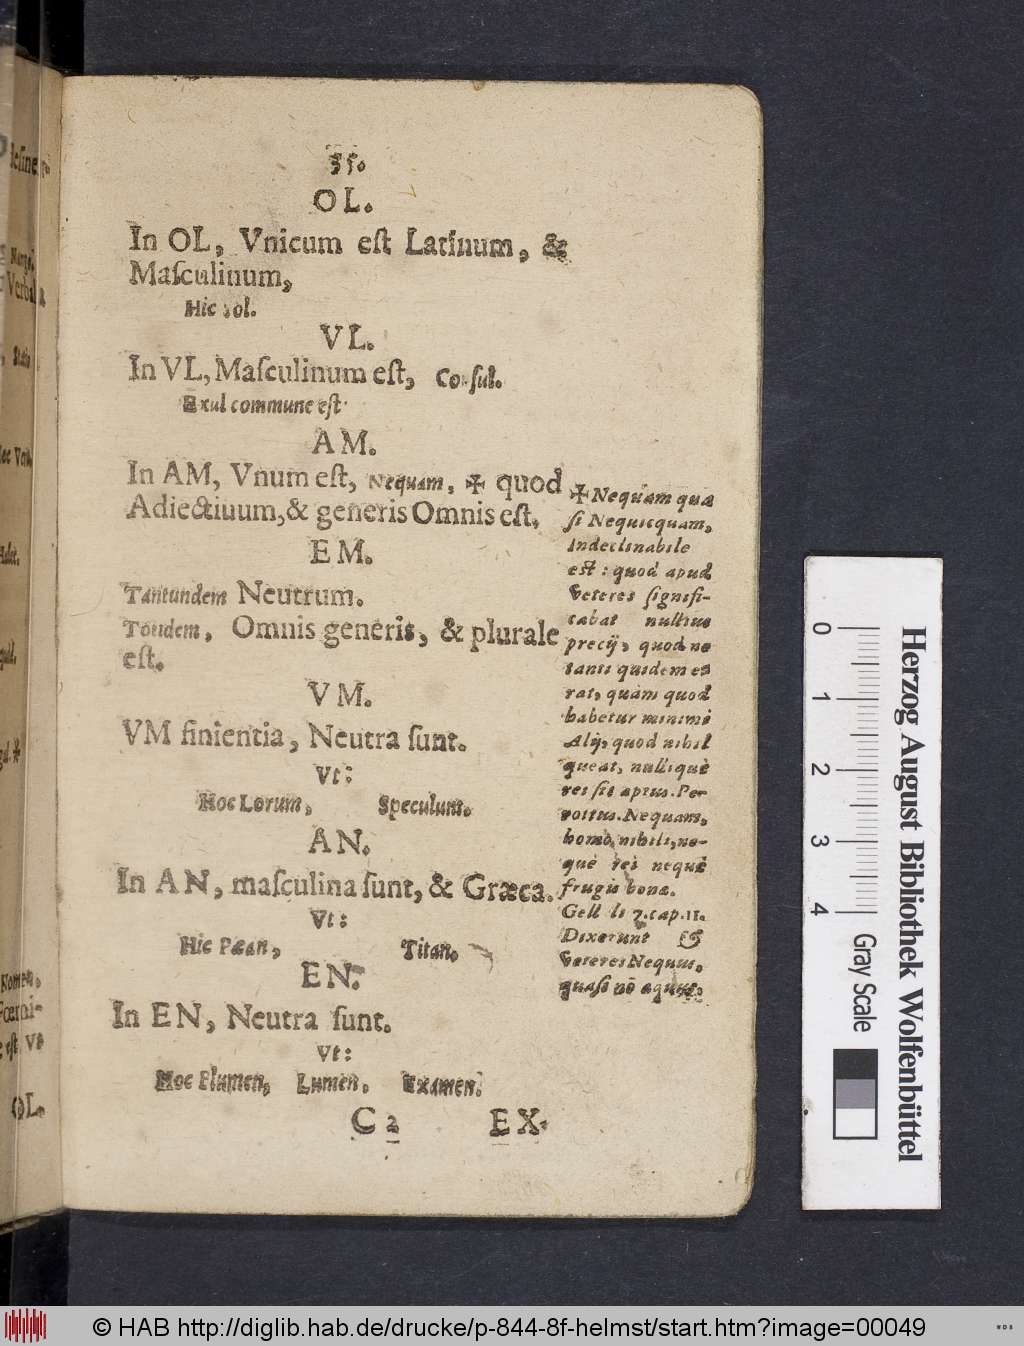 35.
OL.
In OL, Vnicum eſt Latinum, &
Maſculinum,
Hic ſol.
VL.
In VL, Maſculinum eſt, Conſul.
Exul commune eſt
AM.
In AM, Vnum eſt, Nequam, ✠ quod
Adiectiuum, & generis Omnis eſt.
EM.
Tantundem Neutrum.
Totidem, Omnis generis, & plurale
eſt.
VM.
VM finientia, Neutra ſunt.
Vt:
Hoc Lorum, Speculum.
AN.
In AN, maſculina ſunt, & Græca.
Vt:
Hic Pæan, Titan.
EN.
In EN, Neutra ſunt.
Vt:
Hoc Flumen, Lumen, Examen.
C 2 EX.
✠ Nequam qua
ſi Nequicquam,
Indeclinabile
eſt: quod apud
Veteres ſignifi-
cabat nullius
precij, quod ne
tanti quidem e
rat, quàm quod
habetur minimè
Alij, quod nihil
queat, nulliquè
rei ſit aptus. Pe-
rottus. Nequam,
homo nihili, ne-
què rei nequè
frugis bonæ.
Gell li 7. cap. 11.
Dixerunt &
Veteres Nequus,
quaſi nō æquus.
deſinen
Verbal
Nomen,
OL.
0 1 2 3 4
Gray Scale
Herzog August Bibliothek Wolfenbüttel
© HAB http://diglib.hab.de/drucke/p-844-8f-helmst/start.htm?image=00049